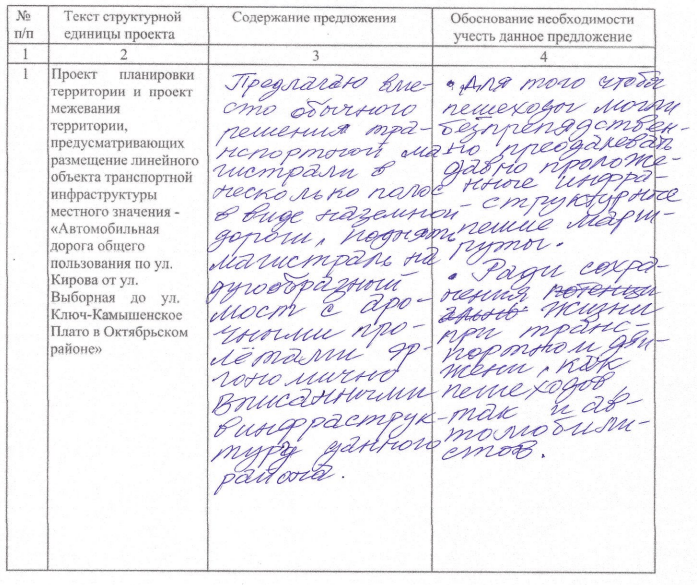 № п/п
Текст структурной единицы проекта
Содержание предложения
Обоснование необходимости учесть данное предложение
1
2
3
4
1
Проект планировки
территории и проект
межевания
территории,
предусматривающих
размещение линейного
объекта транспортной
инфраструктуры
местного значения -
«Автомобильная
дорога общего
пользования по ул.
Кирова от ул.
Выборная до ул.
Ключ-Камышенское
Плато в Октябрьском
районе»
Предлагаю вме-
сто обычного
решения тра-
нспортной ма
гистрали в
несколько полос
в виде наземной
дороги, поднять
магистраль на
дугообразный
мост с аро-
чными про-
лётами эр-
гономично
вписанными
в инфраструк-
туру данного
района.
• Для того чтобы
пешеходы могли
безпрепядствен-
но преодалевать
давно проложе-
нные инфра-
-структурные
пешие марш-
руты.
• Ради сохра-
нения
жизни
при транс-
портном дви-
жени, как
пешеходов
так и ав-
томобили-
стов.